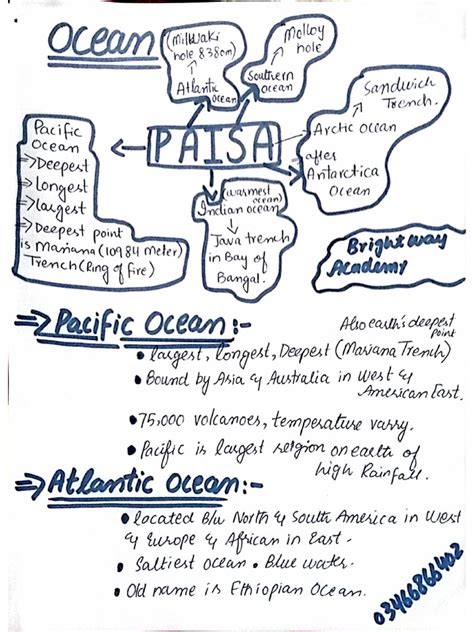 Ocean
(Milwaki
hole 8380m)
Atlantic
Ocean
Molloy
hole
Southern
ocean
Sandwich
Trench.
Arctic ocean
after
Antarctica
Ocean
PAISA
Pacific
Ocean
⇒Deepest
⇒longest
⇒largest
⇒Deepest point
is Mariana (10984 meter)
Trench (Ring of fire)
(warmest
ocean)
Indian ocean
Java trench
in Bay of
Bangal.
Brightway
Academy
⇒Pacific Ocean:-
Also earth's deepest
point
• largest, longest, Deepest (Mariana Trench)
• Bound by Asia & Australia in West &
American East.
• 75,000 volcanoes, temperature varry.
• Pacific is largest religion on earth of
high Rainfall.
⇒Atlantic Ocean:-
• located B/w North & South America in West
& Europe & African in East.
• Saltiest ocean • Blue water.
• Old name is Ethiopian Ocean.
03466866402